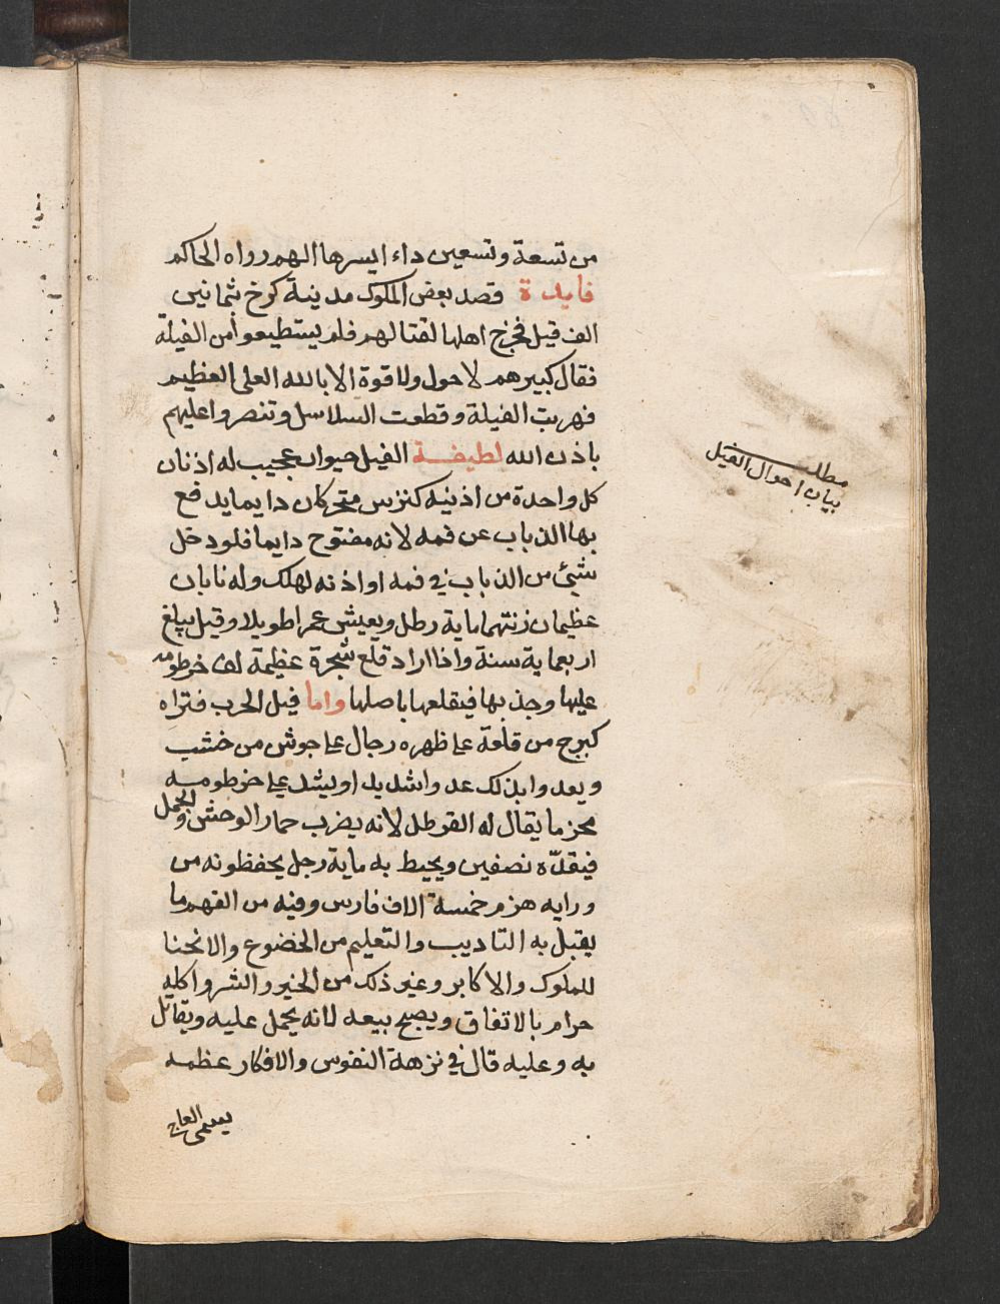 من تسعة وتسعين داء ايسرها الهم رواه الحاكم
فايدة قصد بعض الملوك مدينة كرخ بثمانين
الف فيل فخرج اهلها لقتالهم فلم يستطيعوا من الفيلة
فقال كبيرهم لا حول ولا قوة الا بالله العلي العظيم
فهربت الفيلة وقطعت السلاسل وتنصروا عليهم
باذن الله لطيفة الفيل حيوان عجيب له اذنان
كل واحدة من اذنيه كترس متحركان دايما يدفع
بها الذباب عن فمه لانه مفتوح دايما فلو دخل
شيئ من الذباب في فمه او اذنه لهلك وله نابان
عظيمان زنتهما ماية رطل ويعيش عمرا طويلا وقيل يبلغ
اربعماية سنة واذا اراد قلع شجرة عظيمة لف خرطومه
عليها وجذبها فيقلعها باصلها واما فيل الحرب فتراه
كبرج من قلعة على ظهره رجال على جوش من خشب
ويعدوا بذلك عدوا شديدا ويشد على خرطومه
محزما يقال له القرطل لانه يضرب حمار الوحش والجمل
فيقدّه نصفين ويحيط به ماية رجل يحفظونه من
ورايه هزم خمسة الاف فارس وفيه من الفهم ما
يقبل به التاديب والتعليم من الخضوع والانحنا
للملوك والاكابر وغير ذلك من الخير والشر واكله
حرام بالاتفاق ويصح بيعه لانه يحمل عليه ويقاتل
به وعليه قال في نزهة النفوس والافكار عظمه
يسمى العاج
مطلب
بيان احوال الفيل